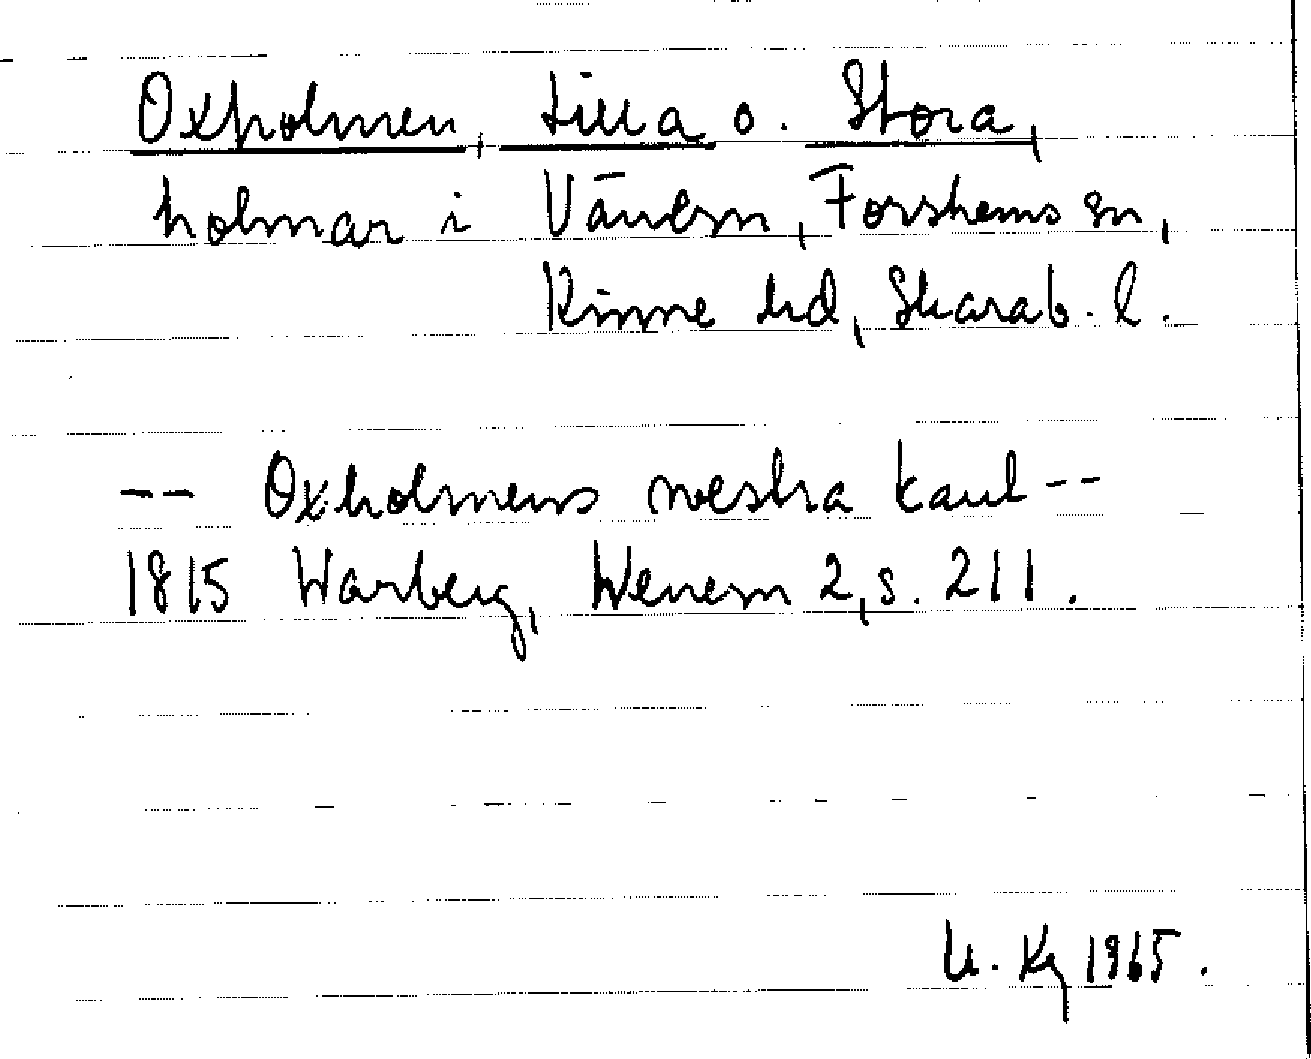 Oxholmen, Lilla o. Stora,
holmar i Vänern, Forshems sn,
Kinne hd, Skarab. l.
-- Oxholmens westra kant --
1815 Warberg, Wenern 2, s. 211.
U. Kg 1965.